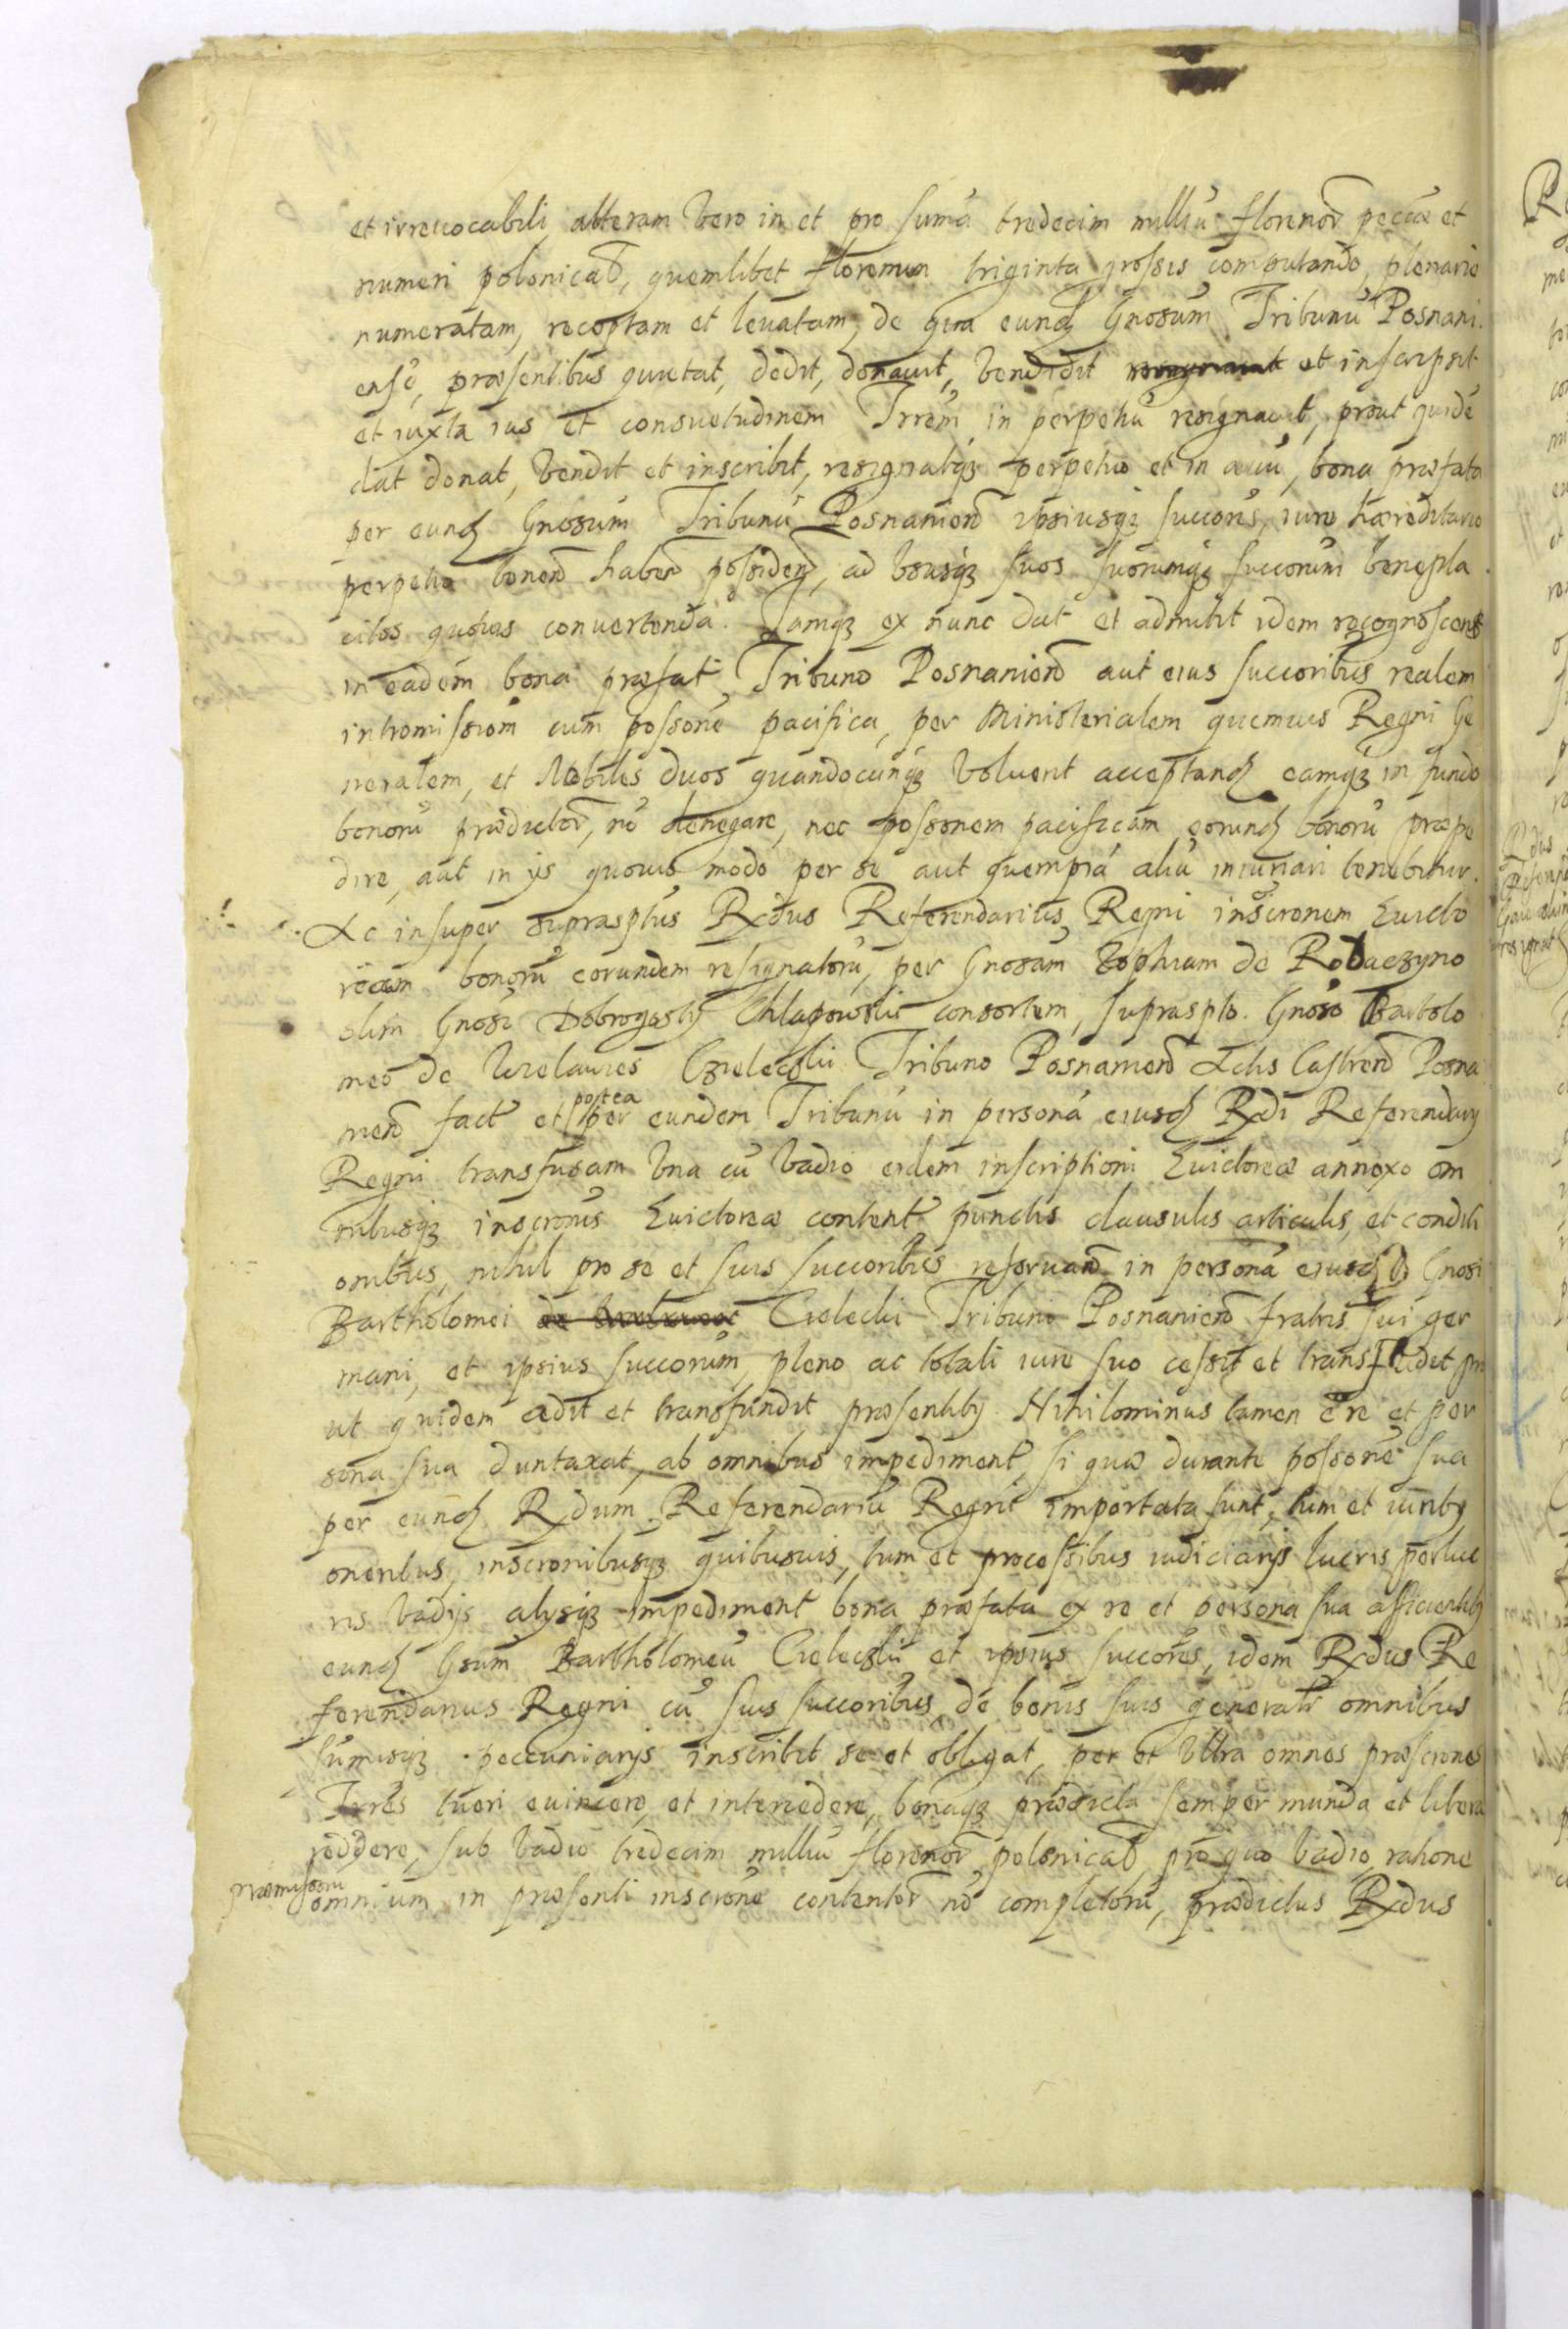 et irreuocabili alteram vero in et pro sumā tredecim milliū florenor pecūæ et
numeri polonicał, quemlibet florenum triginta grossis computando, plenarie
numeratam, receptam et leuatam, de qua eundꝫ Gnosum Tribunū Posnani
ensē, præsentibus quietat, dedit, donauit, vendidit resignauit et inscripsit
et iuxta ius et consuetudinem Trrēm in perpetuū resignauit, prout quidē
dat donat, vendit et inscribit, resignatqꝫ perpetuo et in æuū, bona præfata
per eundꝫ Gnosum Tribunū Posnanień ipsiusqꝫ succores, iure hæreditario
perpetuo tenenď habenď possidenď, ad vsusqꝫ suos suorumqꝫ succorum benepla
citos quosuis conuertenda. Iamqꝫ ex nunc dat et admittit idem recognoscens
in eadem bona præfat Tribuno Posnanień aut eius succoribus realem
intromissiom cum possone pacifica, per Ministerialem quemuis Regni Ge
neralem, et Nobiles duos quandocunqꝫ voluerit acceptandꝫ eamqꝫ in fundo
bonorū prædictor, nō denegare, nec possonem pacificam eorundꝫ bonorū præpe
dire, aut in ijs quouis modo per se aut quempiā aliū iniuriari tenebitur.
Ac insuper suprasptus Rxdus Referendarius Regni inscronem Euicto
ream bonorū eorundem resignatorū, per Gnosam Zophiam de Rodaczyno
olim Gnosi Dobrogostij Chlapowski consortem, supraspto. Gnoso Bartolo
meo de Czielecki Tribuno Posnanień Actis Castreń Posna
nień fact et postea per eundem Tribunū in personā eiusdꝫ Rxdi Referendarij
Regni transfusam vna cū vadio eidem inscriptioni Euictoreæ annexo om
nibusqꝫ inscronis Euictoreæ content punctis clausulis articulis, et conditi
onibus, nihil pro se et suis succoribus reseruanď in personā eiusdꝫ Gnosi
Bartholomei Cielecki Tribuni Posnanień fratris sui ger
mani, et ipsius succorum, pleno ac totali iure suo cessit et transfudit pro
ut quidem cedit et transfundit præsentibꝫ. Nihilominus tamen e re et per
sona sua duntaxat, ab omnibus impediment, si quæ durante possone sua
per eundꝫ Rxdum Referendariū Regni importata sunt, tum et iuribꝫ
oneribus, inscronibusqꝫ quibusuis, tum et processibus iudiciarijs lucris perluc
ris vadijs alijsqꝫ impediment bona præfata ex re et persona sua afficientibꝫ
eundꝫ Gsum Bartholomeū Cielecki et ipsius succores, idem Rxdus Re
ferendarius Regni cū suis succoribus de bonis suis generalr omnibus
sumisqꝫ peccuniarijs inscribit se et obligat, per et vltra omnes præscrones
Trres tueri euincere, et intercedere, bonaqꝫ prædicta semper munda et libera
reddere, sub vadio tredecim milliū florenor polonicał, pro quo vadio, ratione
præmissorū omnium in præsenti inscrone contentor nō completorū, prædictus Rxdus